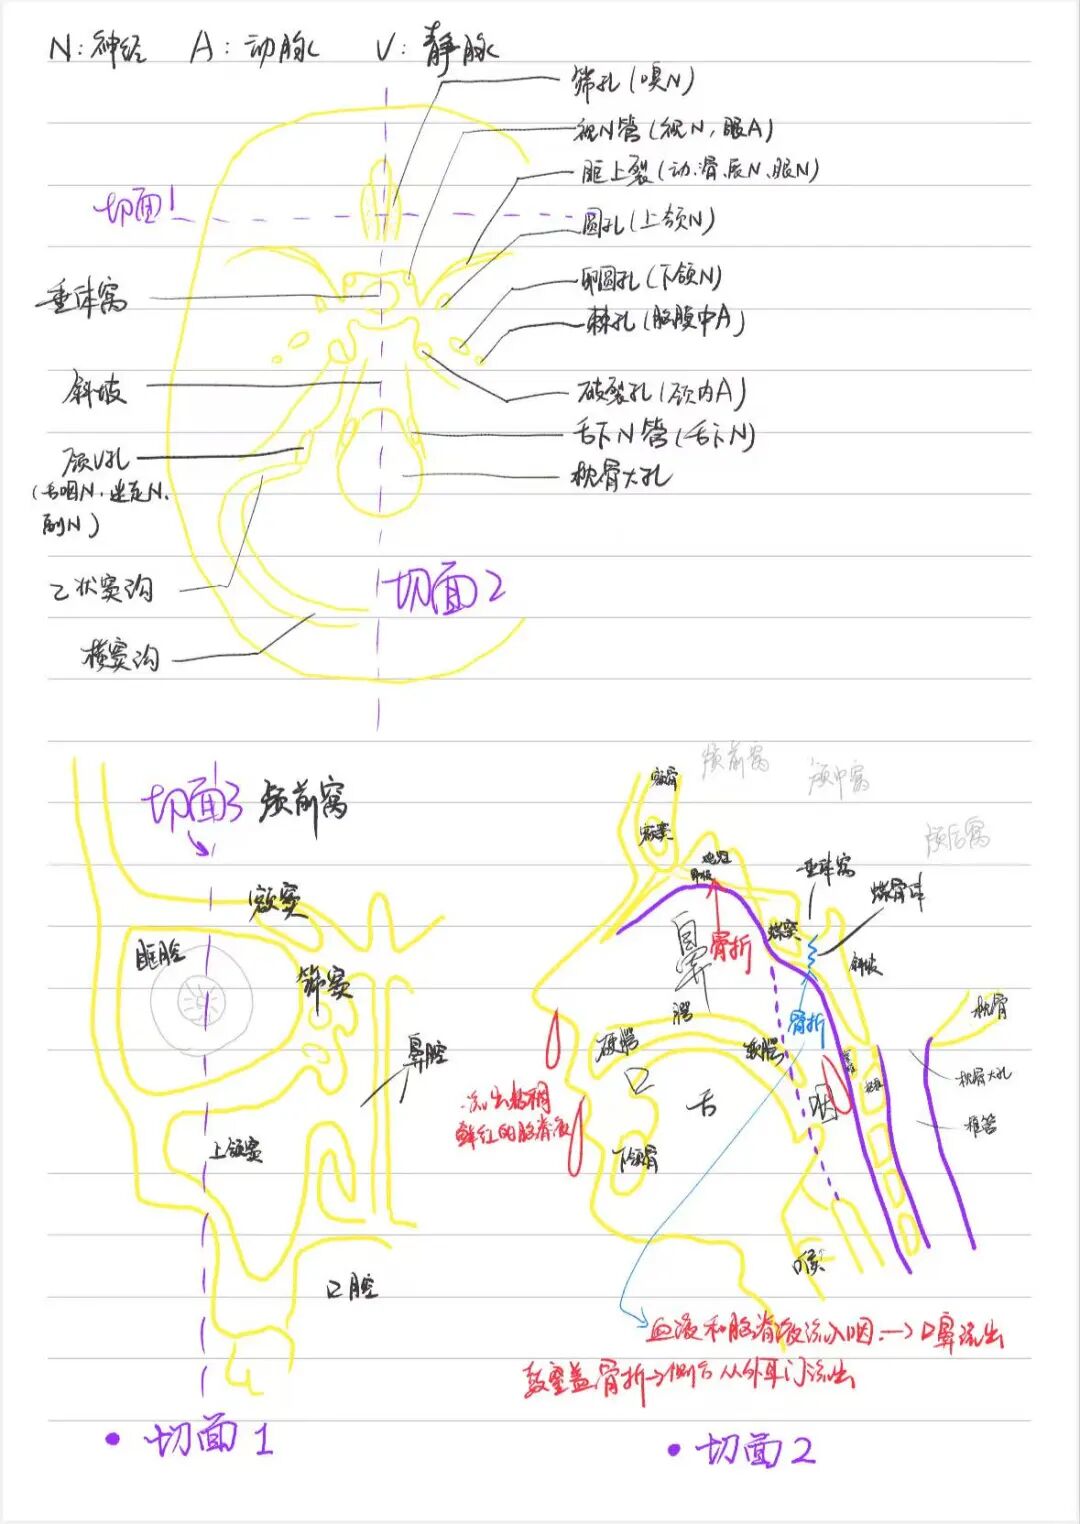 N：神经 A：动脉 V：静脉
筛孔（嗅N）
视N管（视N，眼A）
眶上裂（动、滑、展N、眼N）
切面1
圆孔（上颌N）
卵圆孔（下颌N）
垂体窝
棘孔（脑膜中A）
斜坡
破裂孔（颈内A）
舌下N管（舌下N）
颈V孔
枕骨大孔
（舌咽N、迷走N、
副N）
乙状窦沟
切面2
横窦沟
切面3
颅前窝
额窦
眶腔
筛窦
鼻腔
上颌窦
口腔
• 切面1
颅前窝
颅中窝
颅后窝
额骨
额窦
垂体窝
蝶骨体
蝶窦
鼻
骨折
斜坡
枕骨
腭
骨折
硬腭
软腭
枕骨大孔
口
舌
咽
椎管
流出粘稠
鲜红的脑脊液
下颌骨
喉
血液和脑脊液流入咽→口鼻流出
鼓室盖骨折→从外耳门流出
• 切面2